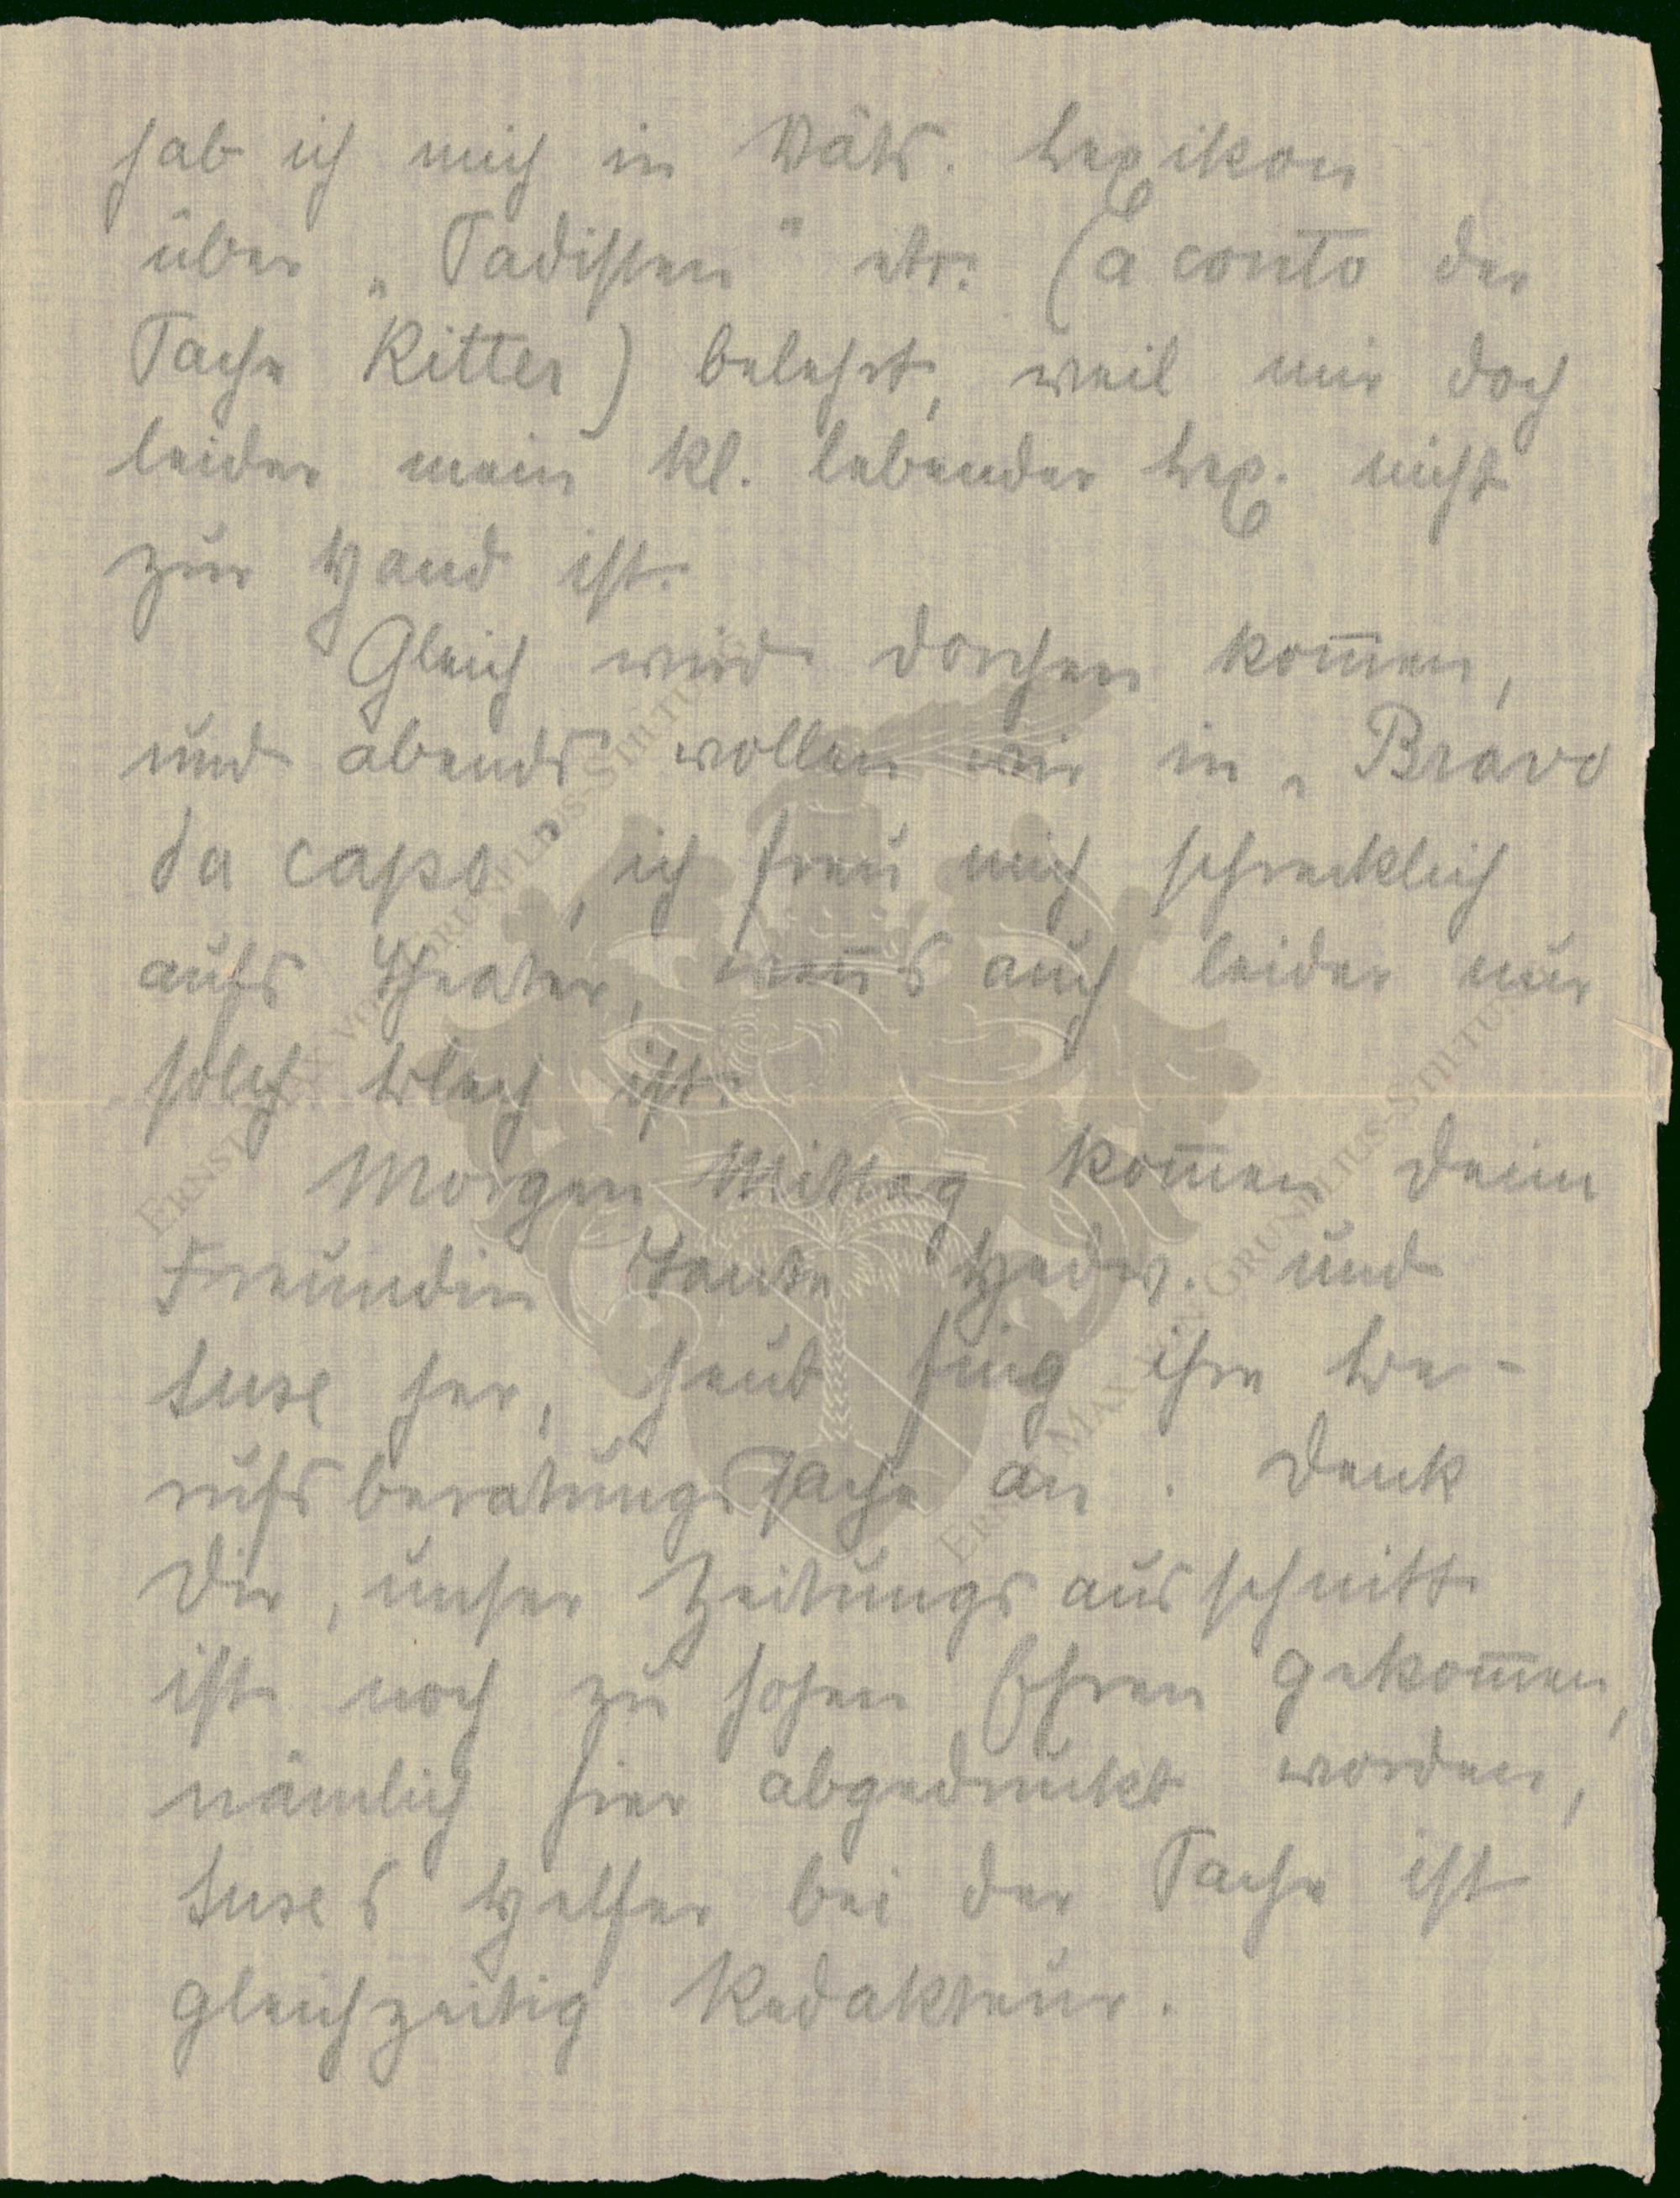 hab ich mich in Väts. Lexikon
über „Sadisten" etc. (a conto der
Sache Ritter) belehrt, weil mir doch
leider mein kl. lebender Lex. nicht
zur Hand ist.
Gleich wird Dorchen kom̅en,
und abends wollen wir in „Bravo
da capo", ich freu mich schrecklich
aufs Theater, wen̅s auch leider nur
solch Blech ist.
Morgen Mittag kom̅en Deine
Freundin Tante Hedw. und
Suse her, heut fing ihre Be-
rufsberatungssache an. Denk
Dir, unser Zeitungsausschnitt
ist noch zu hohen Ehren gekom̅en,
nämlich hier abgedruckt worden,
Suses Helfer bei der Sache ist
gleichzeitig Redakteur.